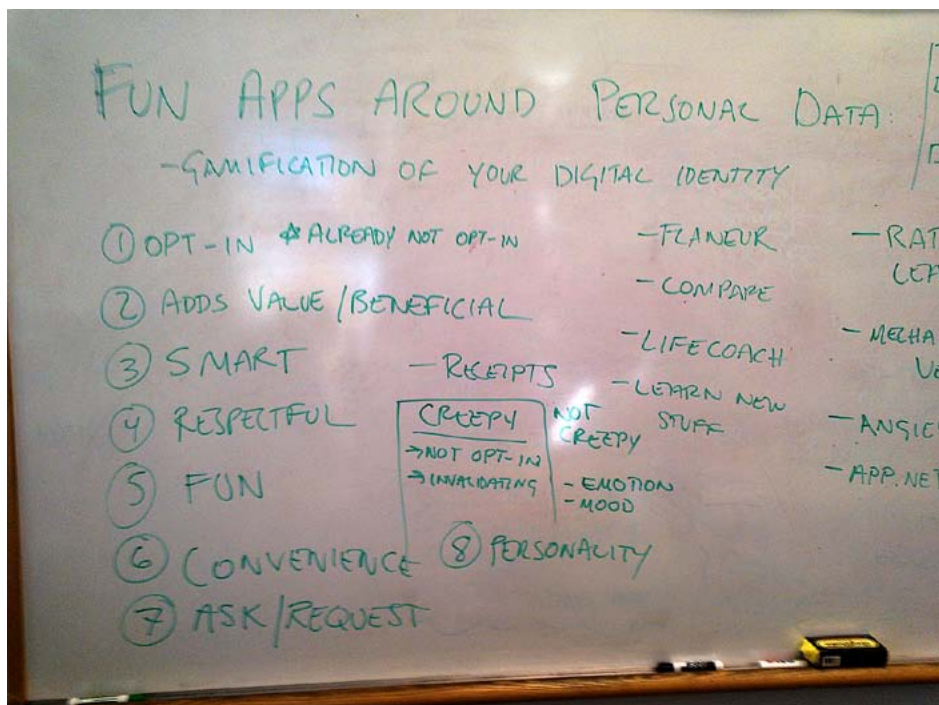 FUN APPS AROUND PERSONAL DATA
-GAMIFICATION OF YOUR DIGITAL IDENTITY
① OPT-IN * ALREADY NOT OPT-IN
② ADDS VALUE/BENEFICIAL
③ SMART
④ RESPECTFUL
⑤ FUN
⑥ CONVENIENCE
⑦ ASK/REQUEST
⑧ PERSONALITY
- RECEIPTS
CREEPY
→NOT OPT-IN
→INVALIDATING
NOT
CREEPY
- EMOTION
- MOOD
-FLANEUR
- COMPARE
-LIFECOACH
-LEARN NEW
STUFF
- RAT
- MECHA
- ANGIE
- APP.NET